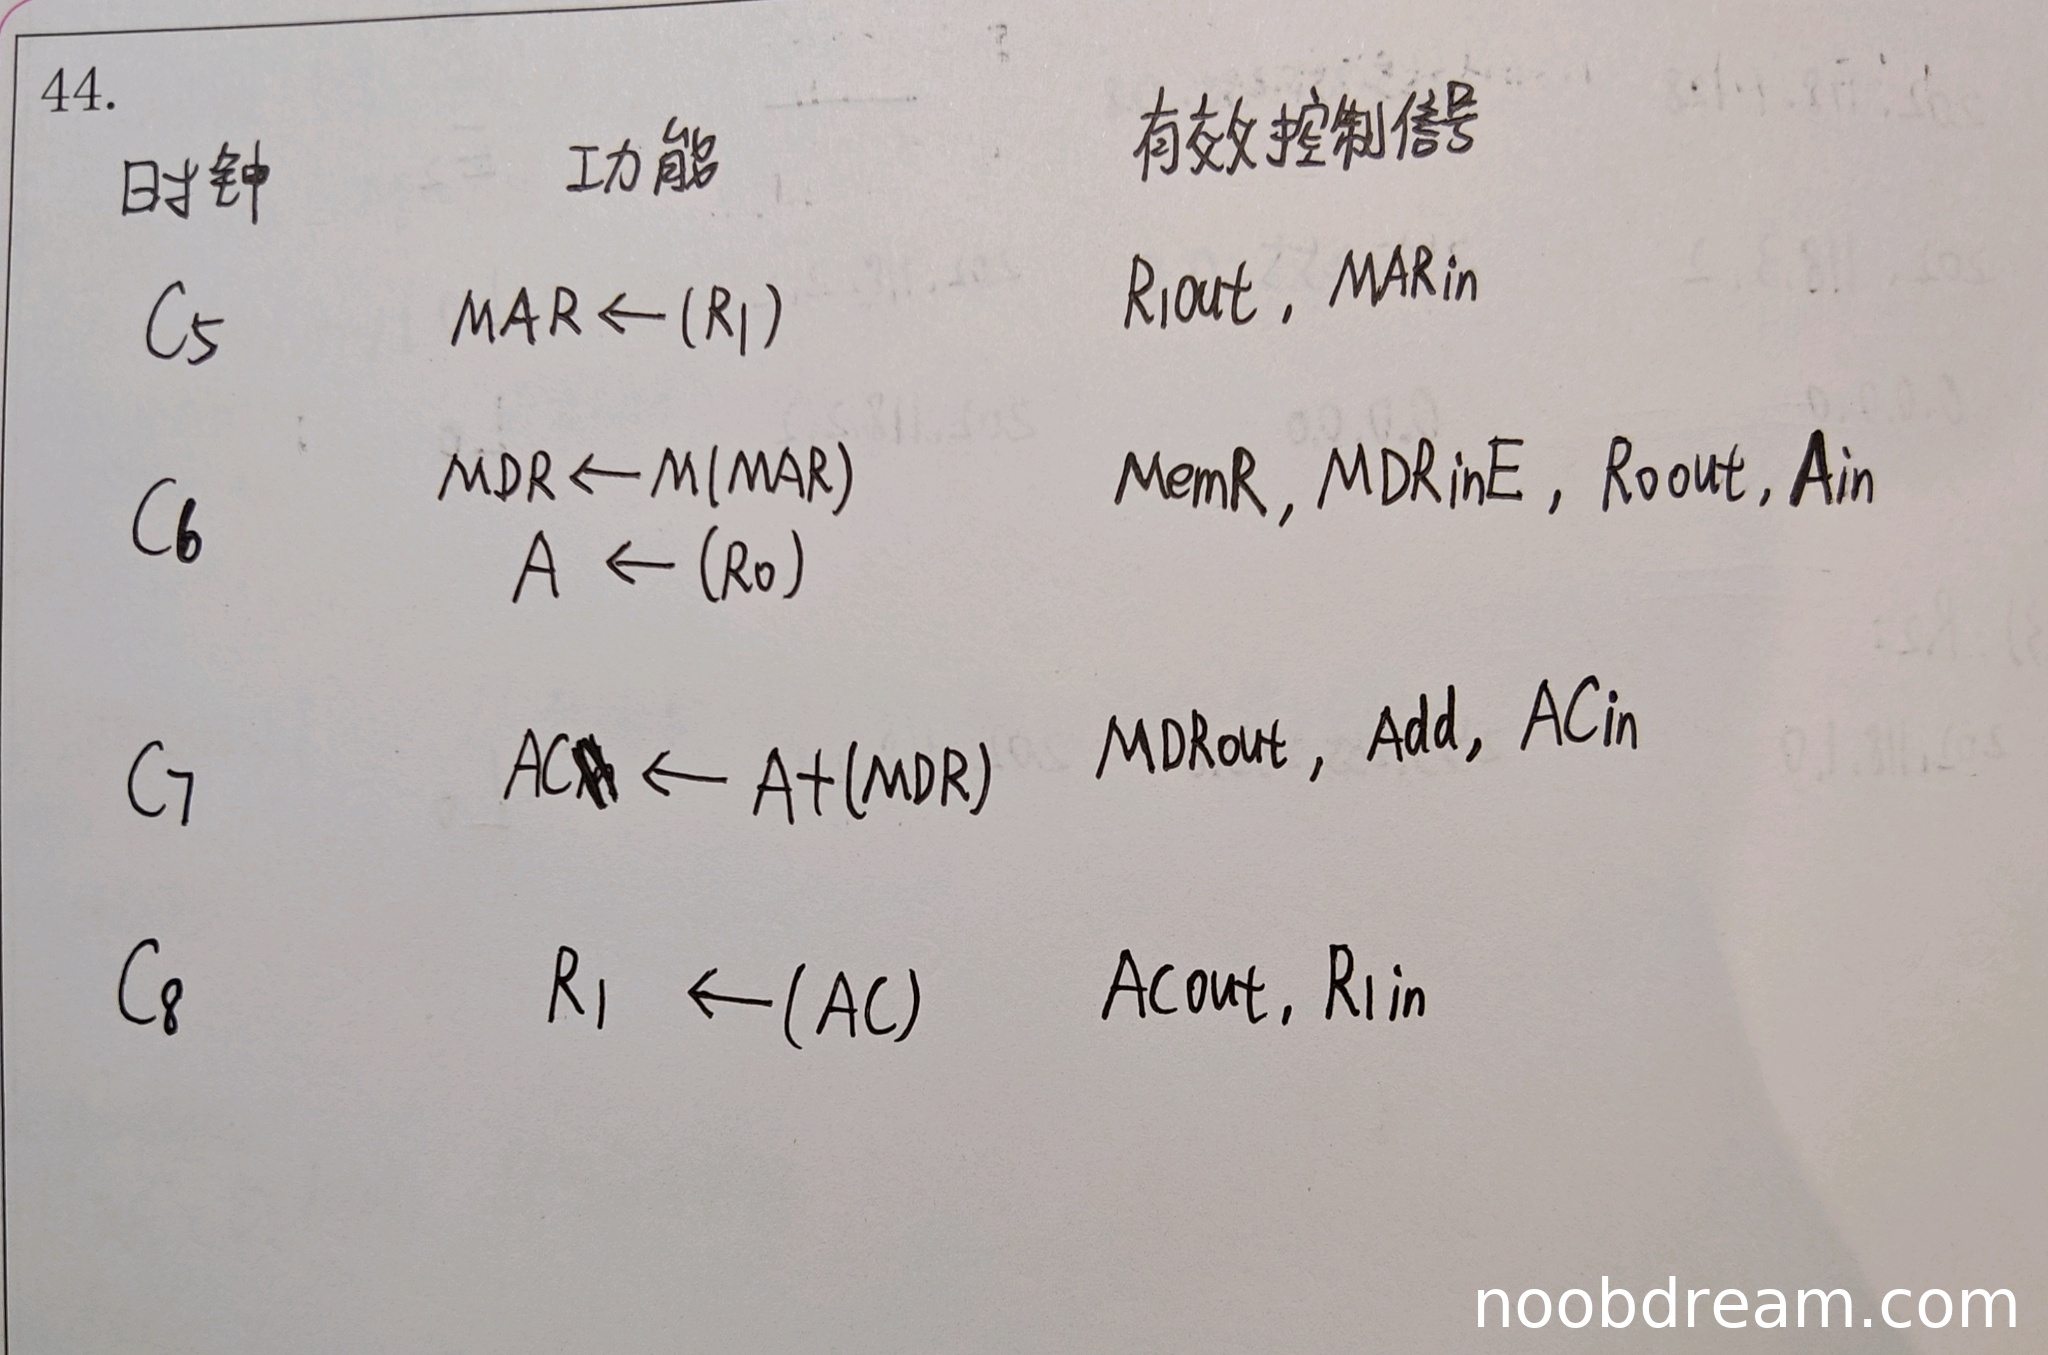 44.
时钟 功能 有效控制信号
C5 MAR ← (R1) R1out, MARin
C6 MDR ← M(MAR) MemR, MDRinE, R0out, Ain
A ← (R0)
C7 AC ← A+(MDR) MDRout, Add, ACin
C8 R1 ← (AC) ACout, R1in
noobdream.com